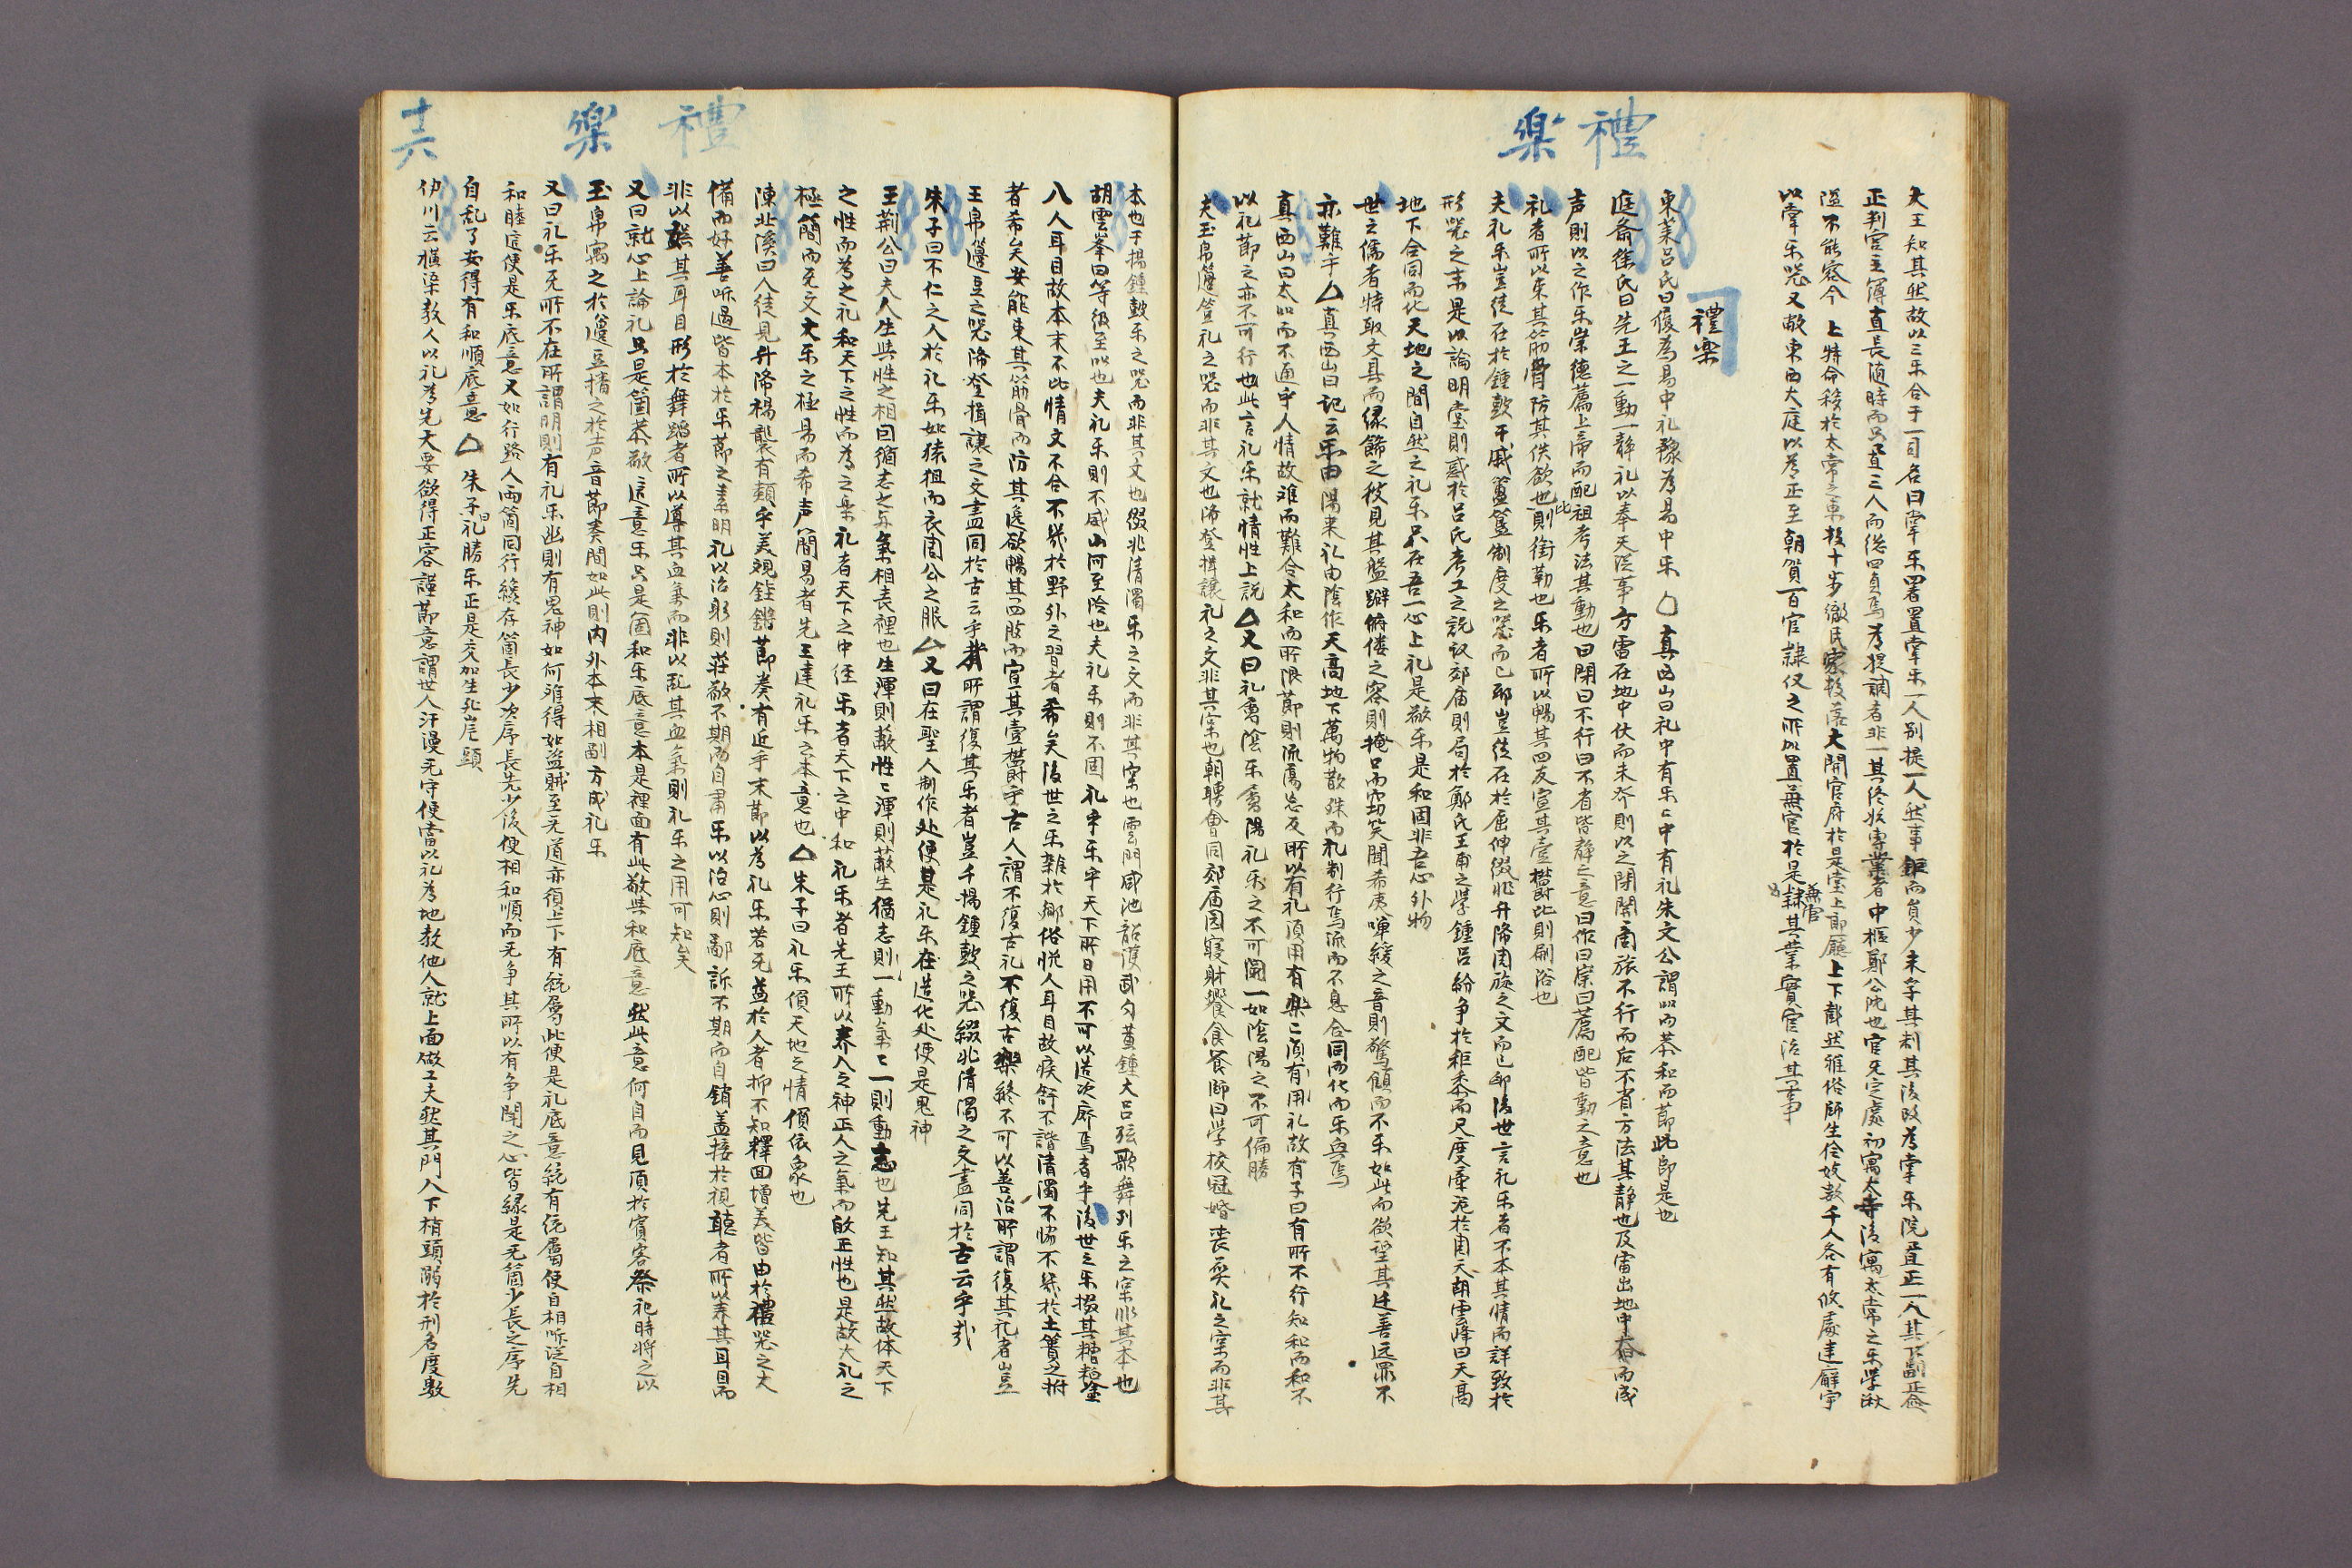 禮樂
大王知其然故以三乐合于一司名曰掌乐署置掌乐一人别提一人然事鉅而員少未掌其制其後改爲掌乐院置正一人其下副正僉
正判官主簿直長随時而只置三人而總四員焉爲提調者非一其終始專業者中樞鄭公沈也官无定處初寓太寺後寓太常之乐学湫
隘不能容今 上特命移於太常之東投十步徹民家投落大開官府於是堂上郎廳上下截然雅俗師生伶妓数千人各有攸處建廨宇
以掌乐器又敞東西大庭以爲正至朝賀百官隷仪之所以置兼官於是隷其業實官治其事
禮樂
東萊呂氏曰履爲易中礼豫爲易中乐 △ 真西山曰礼中有乐乐中有礼朱文公謂以而恭和而節此即是也
庭齋徐氏曰先王之一動一静礼以奉天從事方雷在地中伏而未発則以之閉関商旅不行而后不省方法其静也及雷出地中奮而成
声則以之作乐崇德薦上帝而配祖考法其動也曰閉曰不行曰不省皆静之意曰作曰崇曰薦配皆動之意也
礼者所以束其筋骨防其佚欲也此則銜勒也乐者所以暢其四支宣其壹欝此則刷浴也
夫礼乐豈徒在於鍾鼓干戚簠簋制度之器而已耶豈徒在於屈伸綴兆升降周旋之文而已耶後世言礼乐者不本其情而詳致於
形器之末是以論明堂則惑於呂氏考工之説议郊庙則局於鄭氏王肅之学鍾呂紛争於秬黍而尺度牽泥於周天胡雲峰曰天高
地下合同而化天地之間自然之礼乐只在吾一心上礼是敬乐是和固非吾心外物
世之儒者特取文具而缘飾之彼見其盤躃俯偻之容則掩口而窃笑聞希夷嘽緩之音則驚顧而不乐如此而欲望其迁善远罪不
亦難乎△真西山曰記云乐由陽来礼由陰作天高地下萬物散殊而礼制行焉流而不息合同而化而乐興焉
真西山曰太如而不通乎人情故难而難合太和而所限節則流蕩忘反所以有礼須用有樂樂須有用礼故有子曰有所不行知和而和不
以礼節之亦不可行也此言礼乐就情性上説△又曰礼属陰乐属陽礼乐之不可闕一如陰陽之不可偏勝
夫玉帛籩簋礼之器而非其文也降登揖讓礼之文非其实也朝聘會同郊庙固寝射饗食養師田学校冠婚丧奠礼之实而非其
禮樂
本也干揚鍾鼓乐之器而非其文也缀兆清濁乐之文而非其实也雲門咸池韶濩武勺黄鍾大呂弦歌舞列乐之实非其本也
胡雲峯曰等級至以也夫礼乐則不威山河至险也夫礼乐則不固礼乎乐乎天下所日用不可以造次廃焉者乎後世之乐掇其糟粕塗
人耳目故本末不比情文不合不幾於野外之習者希矣後世之乐雜於鄉俗悦人耳目故疾舒不諧清濁不協不幾於土簣之拊
者希矣安能束其筋骨而防其逸欲暢其四肢而宣其壹欝乎古人謂不復古礼不復古樂終不可以善治所謂復其礼者豈
玉帛籩豆之器降登揖讓之文盡同於古云乎哉所謂復其乐者豈干揚鍾鼓之器綴兆清濁之文盡同於古云乎哉
朱子曰不仁之人於礼乐如猿狙而衣周公之服△又曰在聖人制作处便是礼乐在造化处便是鬼神
王荆公曰夫人生與性之相因循志之与氣相表裡也生渾則蔽性性渾則蔽生猶志則一動氣氣一則動志也先王知其然故体天下
之性而爲之礼和天下之性而爲之乐礼者天下之中径乐者天下之中和礼乐者先王所以养人之神正人之氣而啟正性也是故大礼之
極簡而无文大乐之極易而希声簡易者先王建礼乐之本意也△朱子曰礼乐偩天地之情偩依象也
陳北溪曰人徒見升降裼襲有類乎美覌鏗鏘節奏有近乎末節以爲礼乐若无益於人者抑不知釋回增美皆由於禮器之大
備而好善听過皆本於乐節之素明礼以治躬則莊敬不期而自肅乐以治心則鄙詐不期而自銷盖接於視聽者所以养其耳目而
非以娱其耳目形於舞蹈者所以導其血氣而非以乱其血氣則礼乐之用可知矣
又曰就心上論礼只是箇恭敬這意乐只是箇和乐底意本是裡面有此敬與和底意然此意何自而見須於賓客祭祀時将之以
玉帛寓之於籩豆播之於声音節奏間如此則内外本末相副方成礼乐
又曰礼乐无所不在所謂明則有礼乐幽則有鬼神如何雅得如盗賊至无道亦須上下有統屬此便是礼底意統有統屬便自相听從自相
和睦這便是乐底意又如行路人兩箇同行纔存箇長少次序長先少後便相和順而无争其所以有争闘之心皆缘是无箇少長之序先
自乱了安得有和順底意 △ 朱子曰礼勝乐正是交加生死岸頭
伊川云横渠教人以礼爲先大要欲得正容謹節意謂世人汗漫无守便當以礼爲地教他人就上面做工夫然其門人下梢頭溺於刑名度數
十六